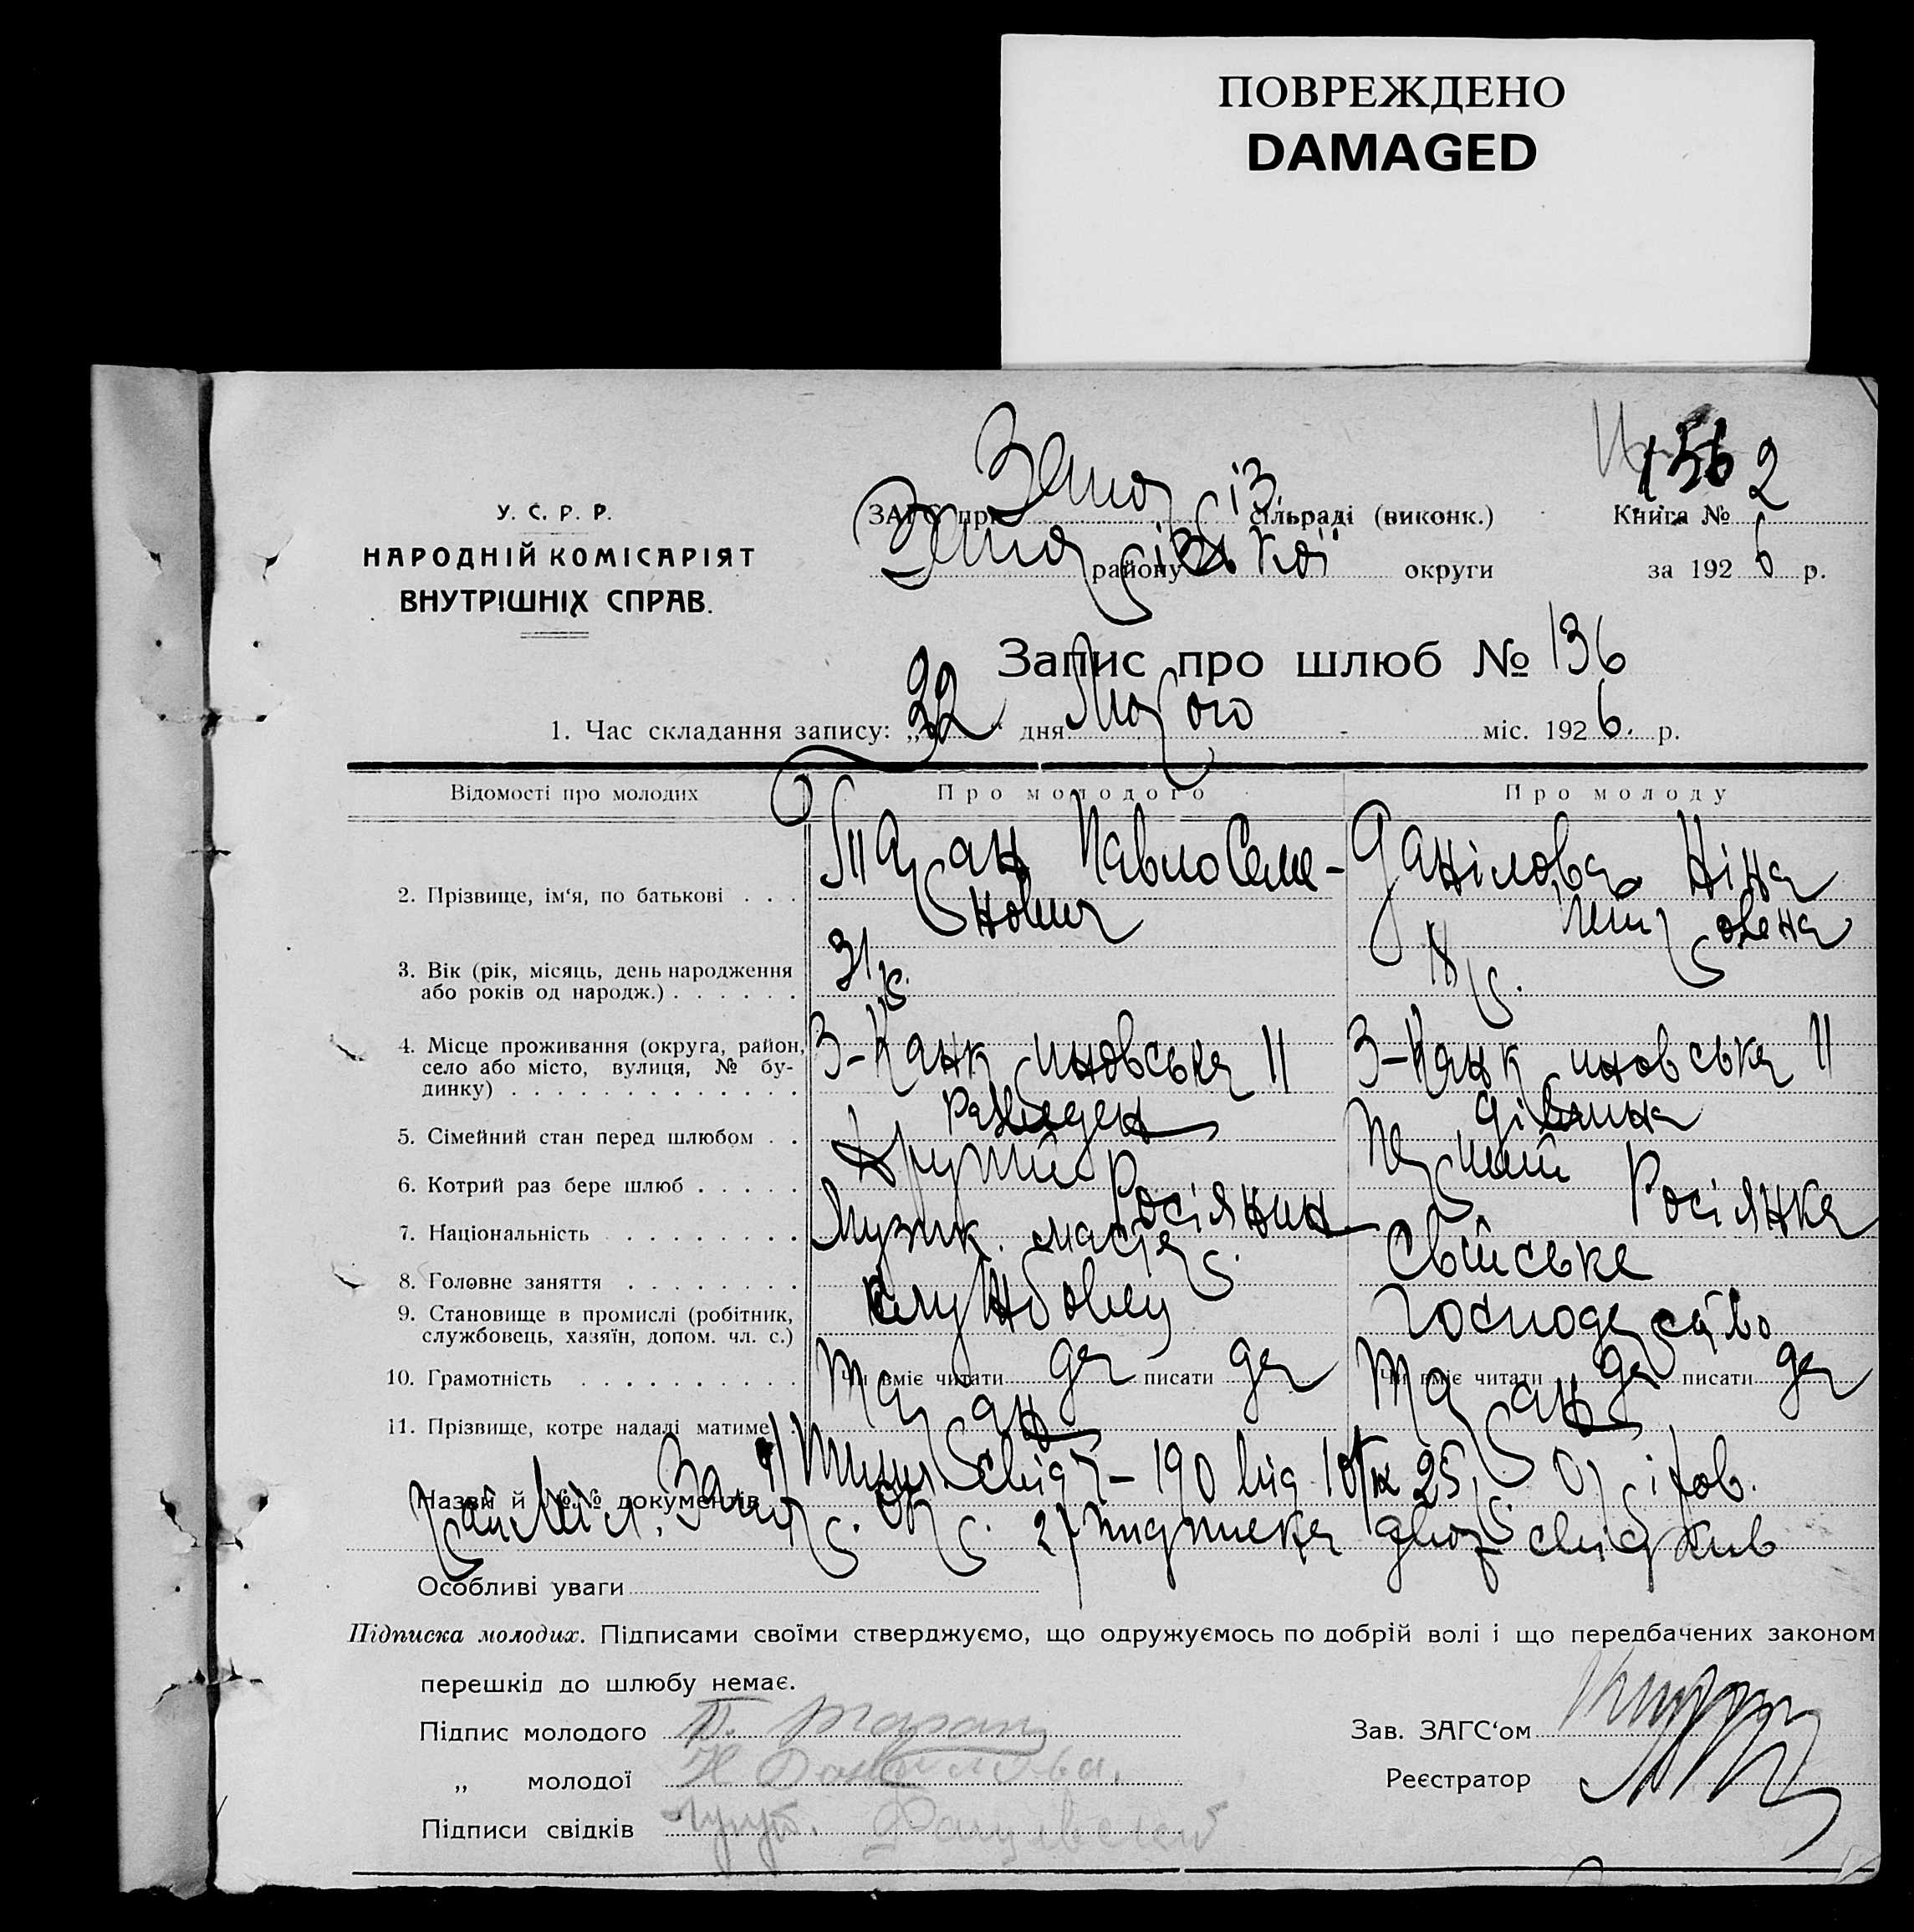 ПОВРЕЖДЕНО
DAMAGED
136 2
У. С. Р. Р.
НАРОДНІЙ КОМІСАРІЯТ
ВНУТРІШНІХ СПРАВ.
ЗАГС при Запоріз. сільраді (виконк.)
Запорізької району округи
Книга №
за 1926 р.
Запис про шлюб № 136
1. Час складання запису: „22" дня Лютого міс. 1926. р.
Відомості про молодих Про молодого Про молоду
2. Прізвище, ім'я, по батькові . . . Таран Павло Семе- Данілова Ніна
нович Петровена
3. Вік (рік, місяць, день народження 31 р. 18 р.
або років од народж.) . . . . . .
4. Місце проживання (округа, район, З-Канкриновська 11 З-Канкриновська 11
село або місто, вулиця, № бу-
динку) . . . . . . . . . . . . .
5. Сімейний стан перед шлюбом . . дівчина
6. Котрий раз бере шлюб . . . . . Другий Перший
7. Національність . . . . . . . . . Росіянин Росіянка
8. Головне заняття . . . . . . . . Музик. Свійське
9. Становище в промислі (робітник, Службовец господарство
службовець, хазяїн, допом. чл. с.)
10. Грамотність . . . . . . . . . . Чи вміє читати да писати да Чи вміє читати да писати да
11. Прізвище, котре надалі матиме . Таран Таран
Назви й №№ документів 1/ 190 від 25 р.
2/ підписка двох свідків
Особливі уваги
Підписка молодих. Підписами своїми стверджуємо, що одружуємось по добрій волі і що передбачених законом
перешкід до шлюбу немає.
Підпис молодого П. Таран
„ молодої Н Данилова.
Підписи свідків
Зав. ЗАГС'ом
Реєстратор